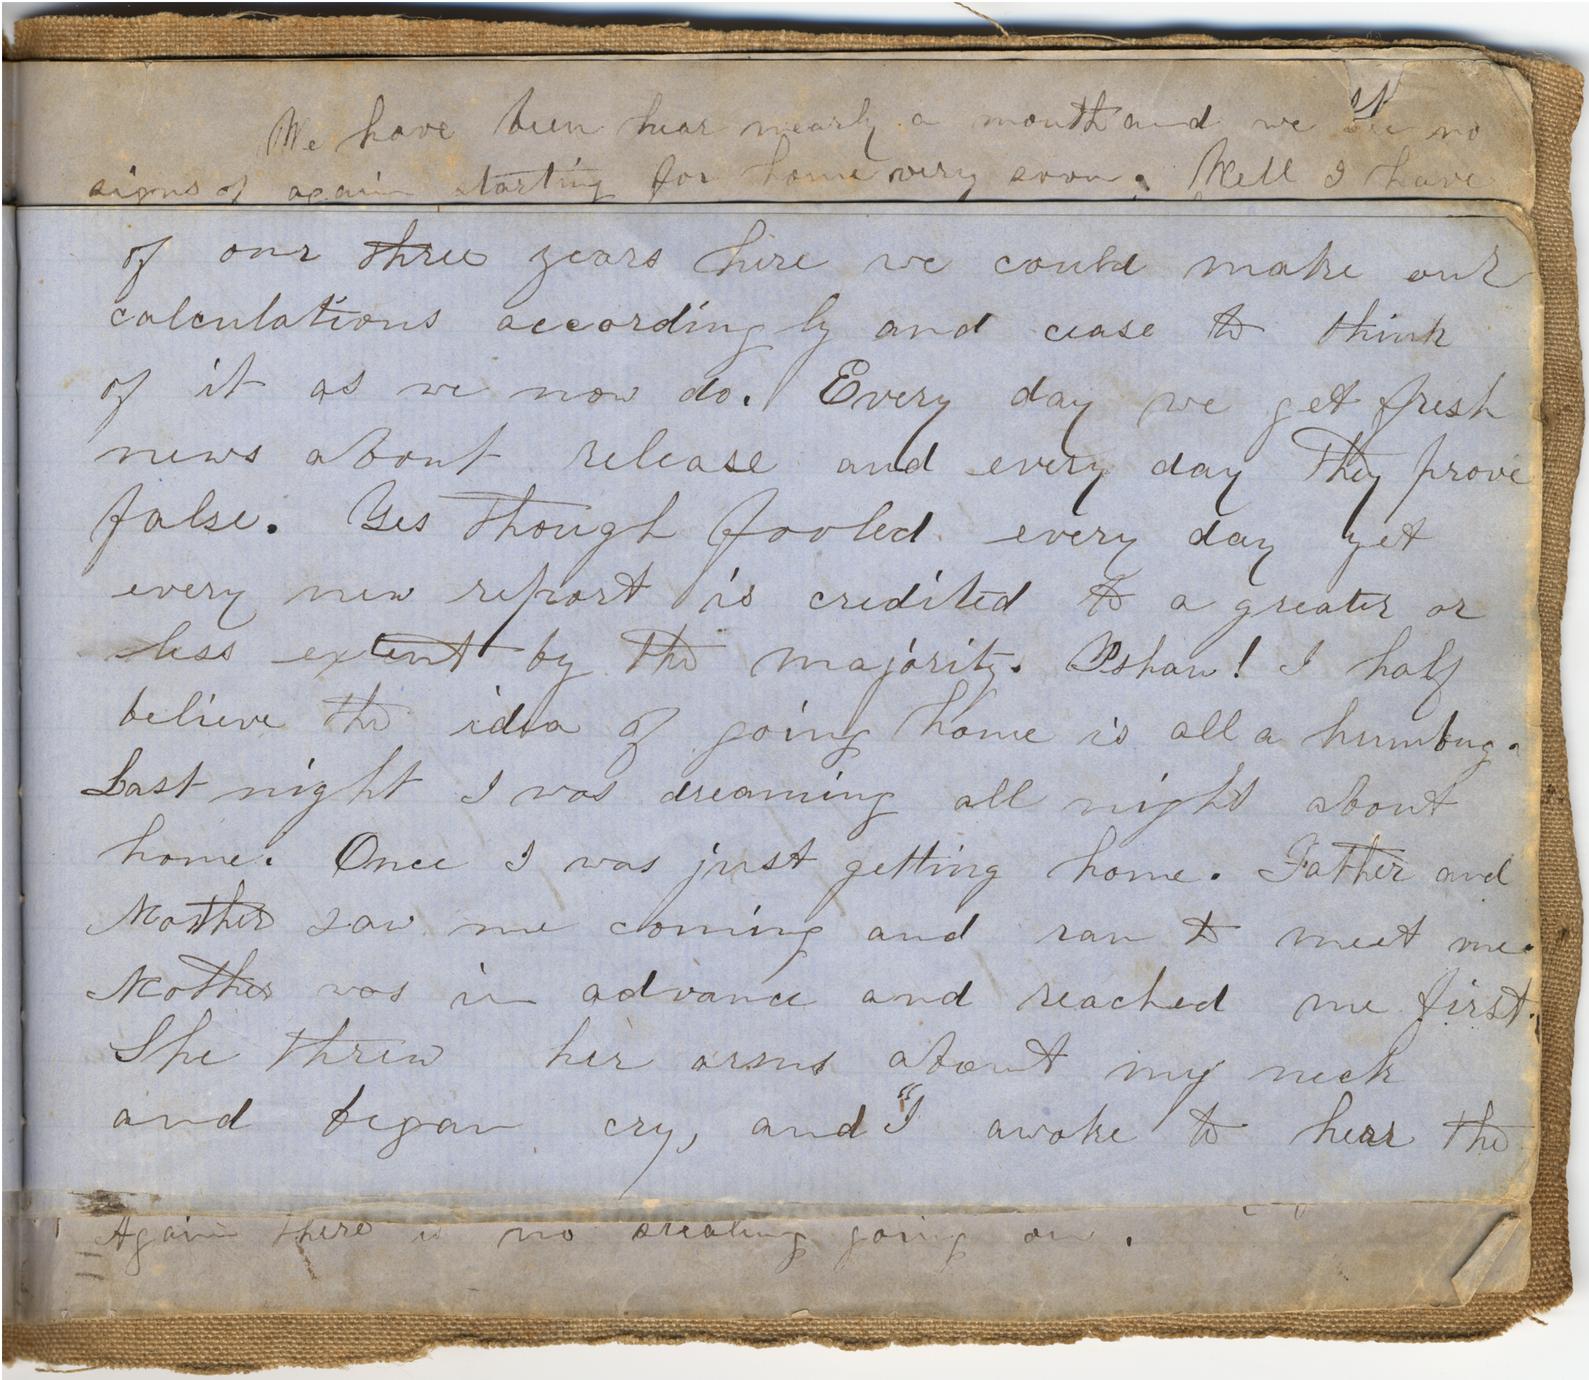 We have been hear nearly a month and we see no
signs of again starting for home very soon. Well I have
of our three years here we could make our
calculations accordingly and cease to think
of it as we now do. Every day we get fresh
news about release and every day they prove
false. Yes though fooled every day yet
every new report is credited to a greater or
less extent by the majority. Pshaw! I half
believe the idea of going home is all a humbug.
Last night I was dreaming all night about
home. Once I was just getting home. Father and
Mother saw me coming and ran to meet me.
Mother was in advance and reached me first.
She threw her arms about my neck
and began cry, and "I awoke to hear the
Again there is no stealing going on.